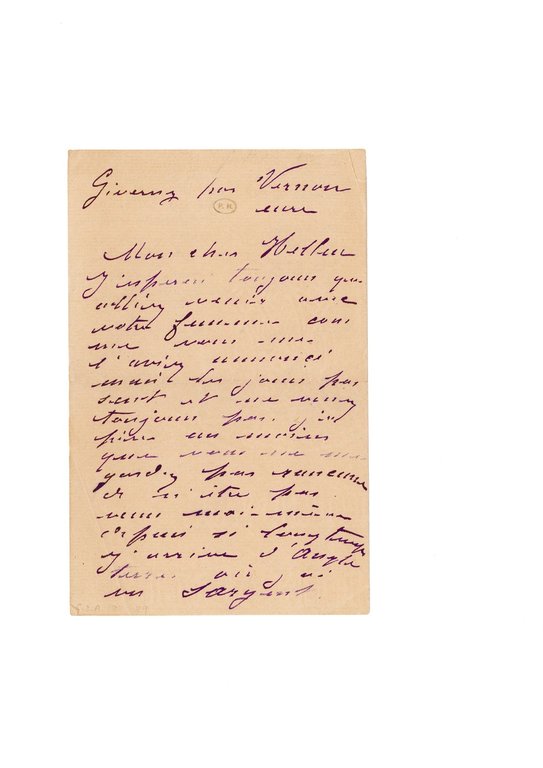 Giverny par Vernon
P. H.
eure
Mon cher Helleu
J'esperais toujours que
alliez venir avec
votre femme com
me vous me
l'aviez annoncé
mais les jours pas
sent et ne venez
toujours pas. j'es
père au moins
que vous ne me
gardez pas rancune
de n'être pas
venu moi-même
depuis si longtemps
j'arrive d'Angle
terre où j'ai
vu Sargent.